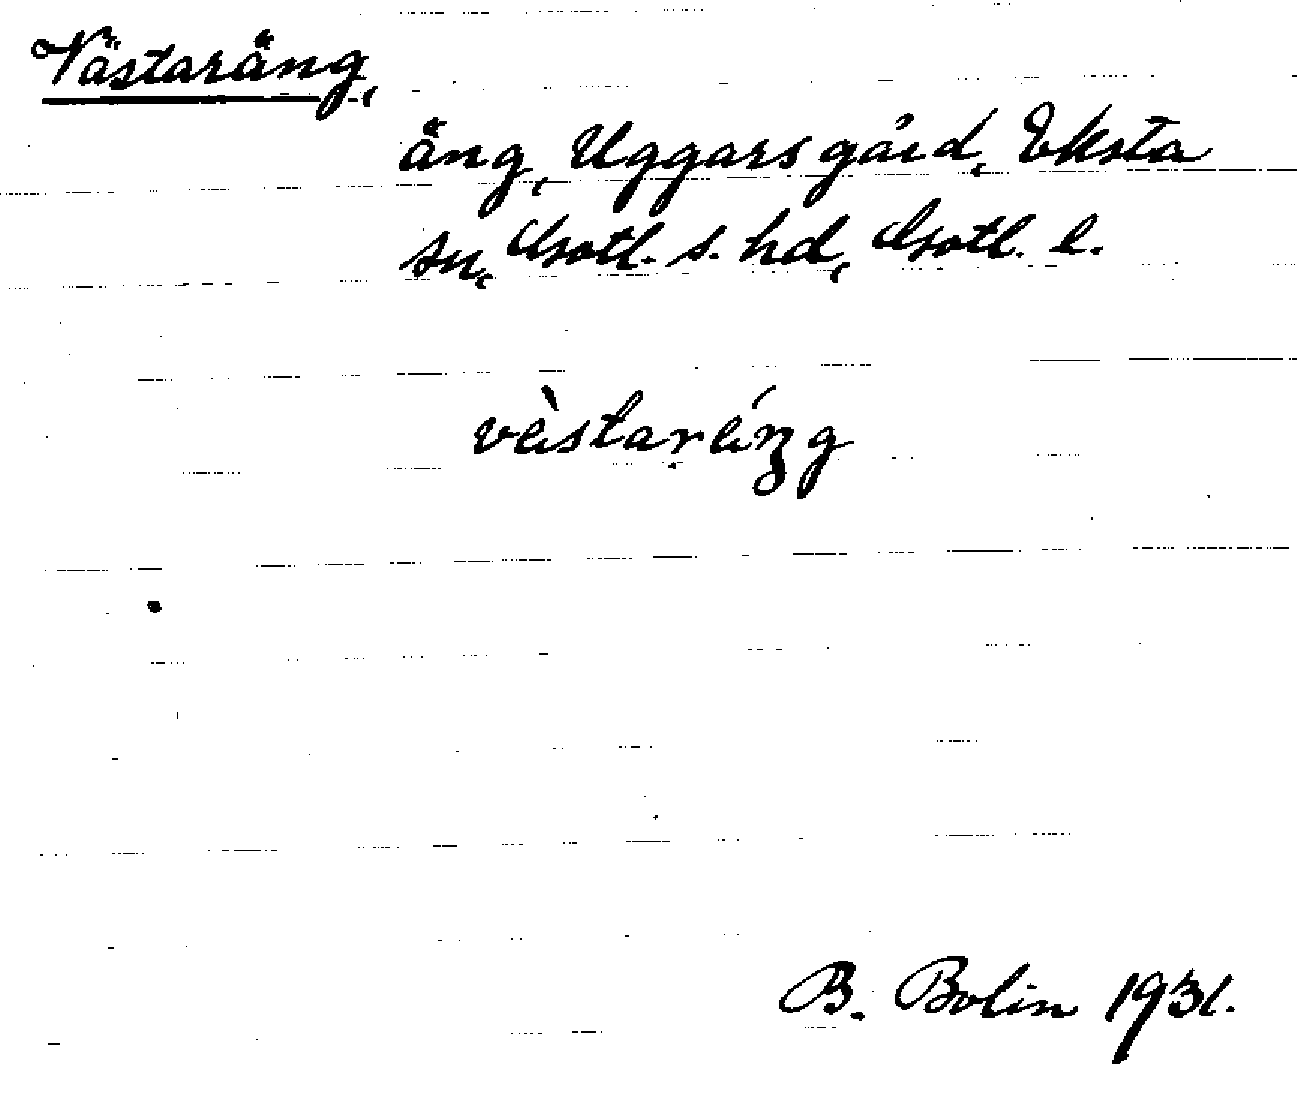 Västaräng,
äng, Uggarsgård, Eksta
sn, Gotl. s. hd, Gotl. l.
vèstaréŋg
B. Bolin 1931.